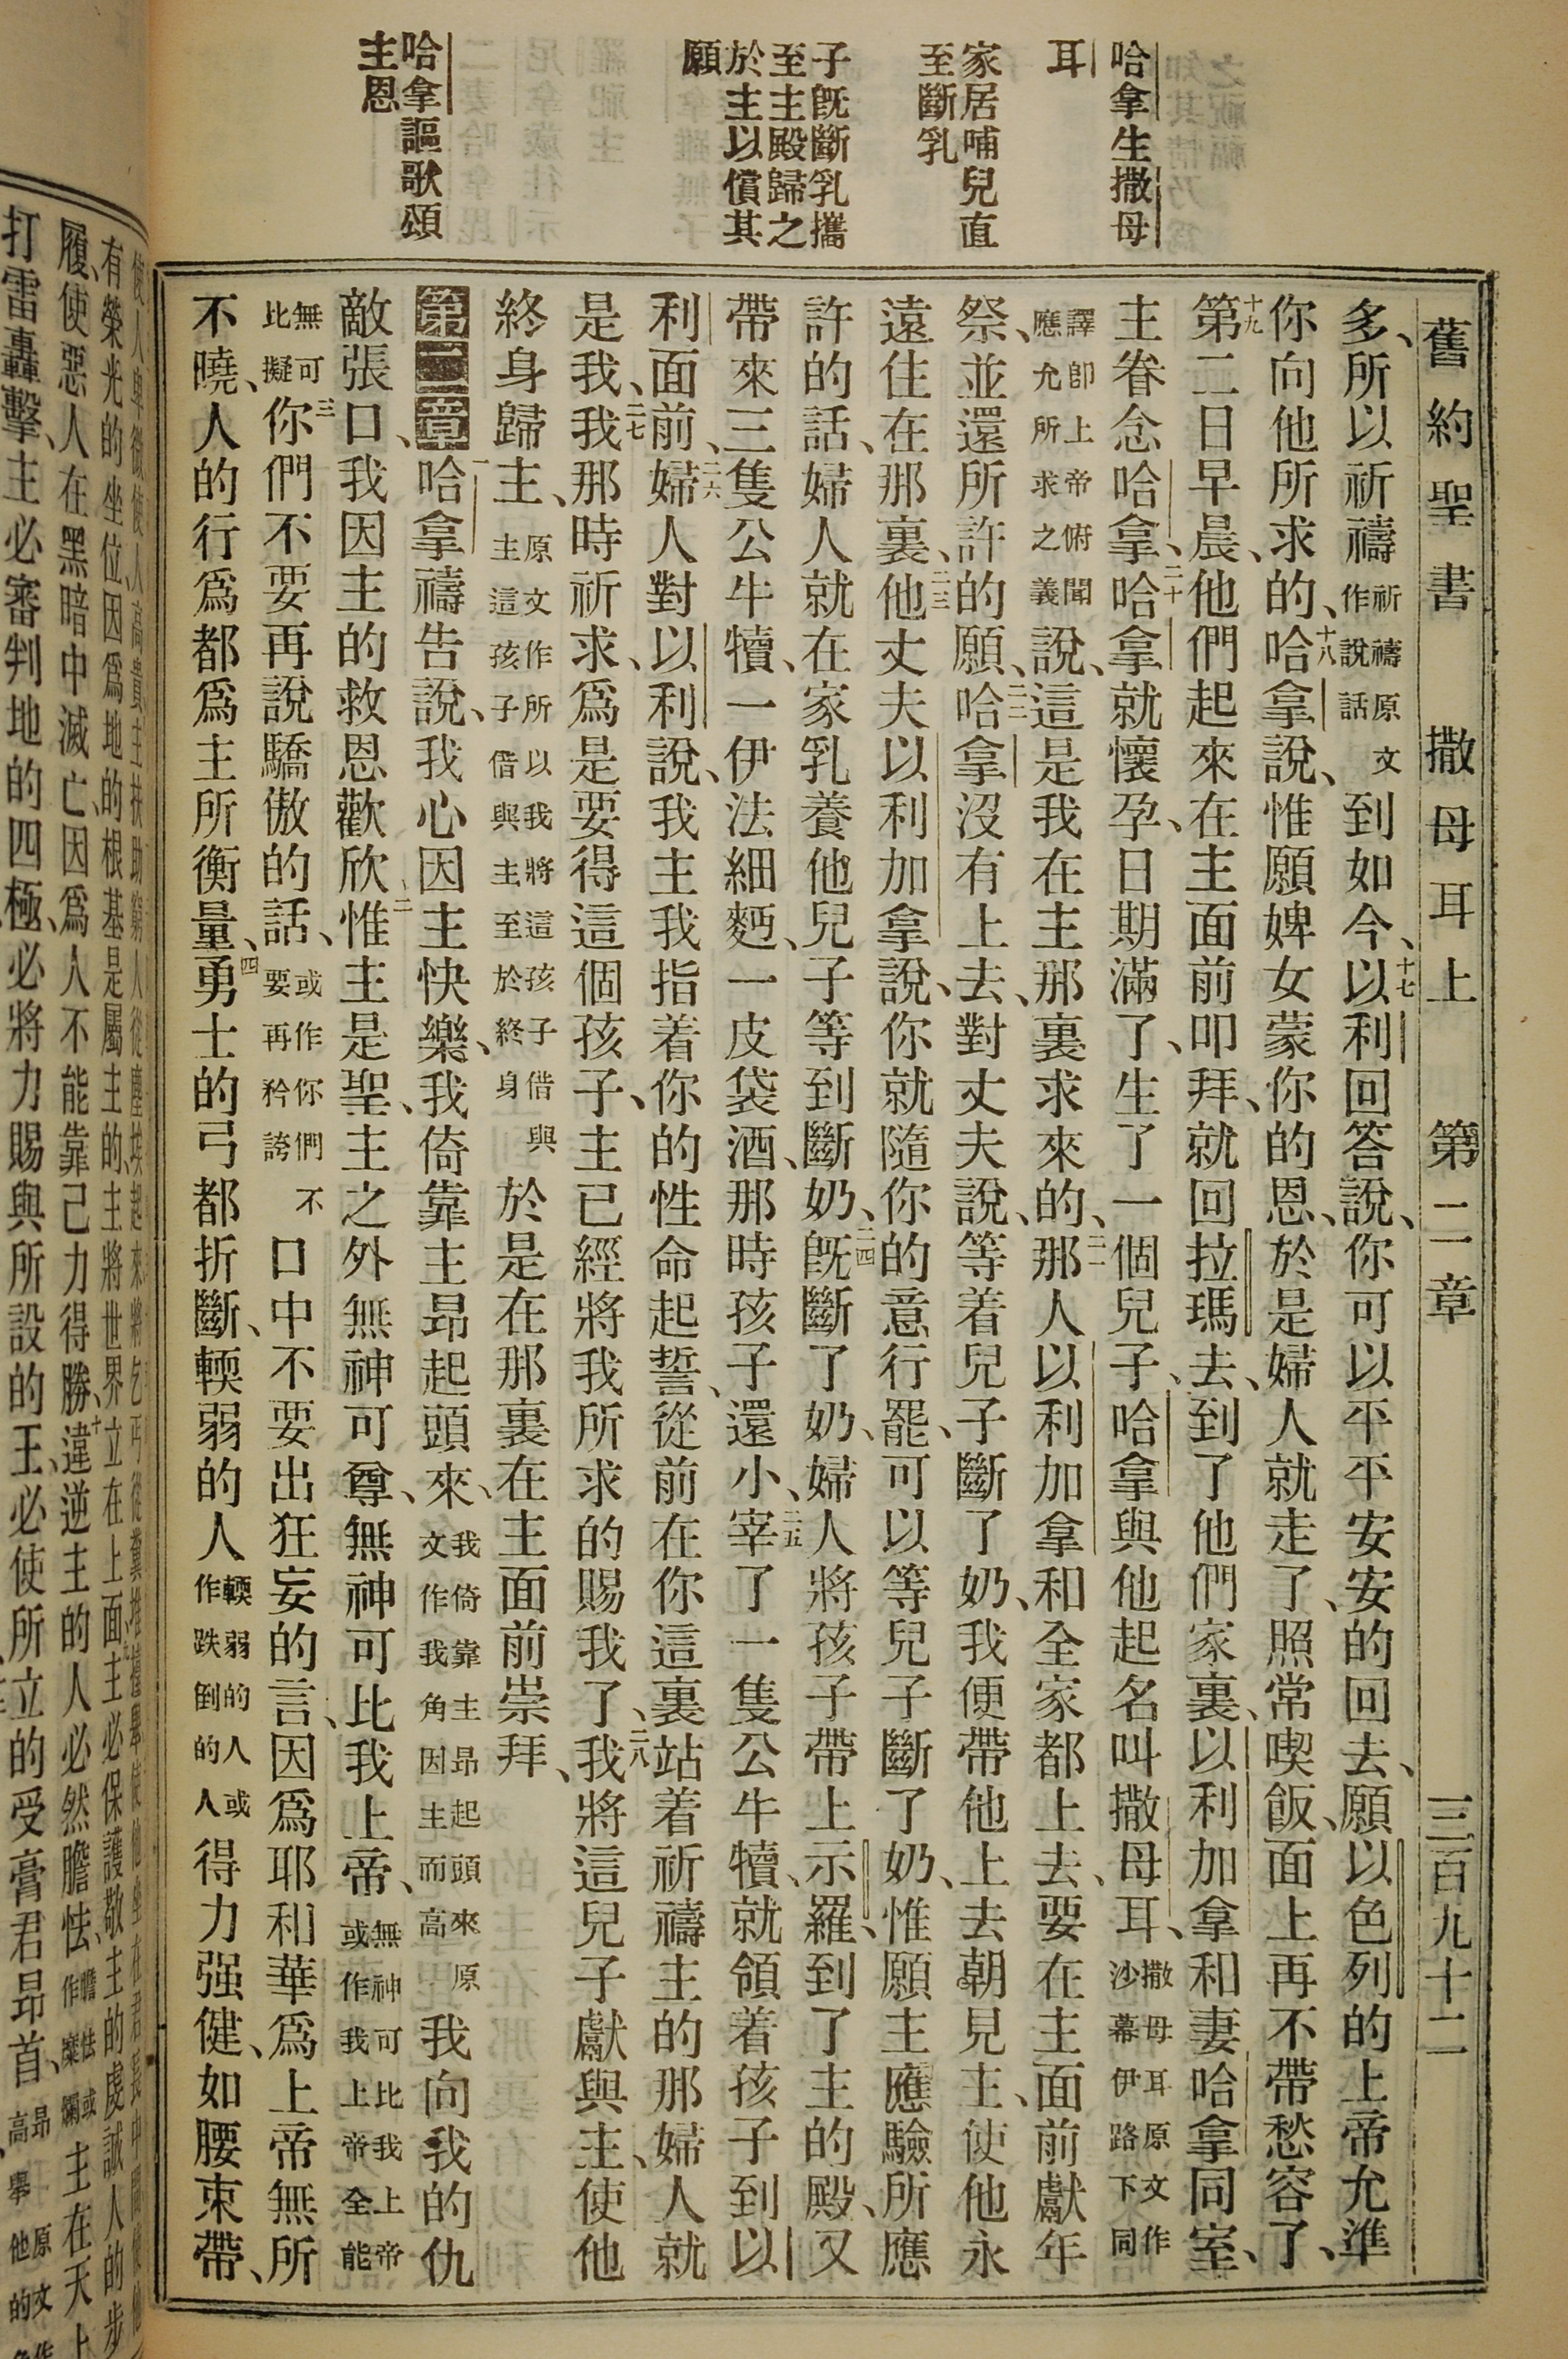 舊約聖書 撒母耳上 第二章 三百九十二
哈拿生撒母
耳
家居哺兒直
至斷乳
子旣斷乳攜
至主殿歸之
於主以償其
願
哈拿謳歌頌
主恩
多、所以祈禱祈禱原文作說話到如今、十七以利回答說、你可以平平安安的回去、願以色列的上帝允準
你向他所求的、十八哈拿說、惟願婢女蒙你的恩、於是婦人就走了、照常喫飯、面上再不帶愁容了、
十九第二日早晨、他們起來在主面前叩拜、就回拉瑪去、到了他們家裏、以利加拿和妻哈拿同室、
主眷念哈拿、二十哈拿就懷孕、日期滿了、生了一個兒子、哈拿與他起名叫撒母耳、撒母耳原文作沙幕伊路下同
譯卽上帝俯聞應允所求之義說、這是我在主那裏求來的、二一那人以利加拿和全家都上去、要在主面前獻年
祭、並還所許的願、二二哈拿沒有上去、對丈夫說、等着兒子斷了奶、我便帶他上去朝見主、使他永
遠住在那裏、二三他丈夫以利加拿說、你就隨你的意行罷、可以等兒子斷了奶、惟願主應驗所應
許的話、婦人就在家乳養他兒子等到斷奶、二四旣斷了奶、婦人將孩子帶上示羅、到了主的殿、又
帶來三隻公牛犢、一伊法細麪、一皮袋酒、那時孩子還小、二五宰了一隻公牛犢、就領着孩子到以
利面前、二六婦人對以利說、我主我指着你的性命起誓、從前在你這裏站着祈禱主的那婦人就
是我、二七我那時祈求、爲是要得這個孩子、主已經將我所求的賜我了、二八我將這兒子獻與主、使他
終身歸主、原文作所以我將這孩子借與主這孩子借與主至於終身於是在那裏在主面前崇拜、
第二章一哈拿禱告說、我心因主快樂、我倚靠主昂起頭來、我倚靠主昂起頭來原文作我角因主而高我向我的仇
敵張口、我因主的救恩歡欣、二惟主是聖、主之外無神可尊、無神可比我上帝、無神可比我上帝或作我上帝全能
無可比擬三你們不要再說驕傲的話、或作你們不要再矜誇口中不要出狂妄的言、因爲耶和華爲上帝無所
不曉、人的行爲都爲主所衡量、四勇士的弓都折斷、輭弱的人輭弱的人或作跌倒的人得力强健、如腰束帶、
有榮光的坐位、因爲地的根基是屬主的、主將世界立在上面、主必保護敬主的虔誠人的步
履、使惡人在黑暗中滅亡、因爲人不能靠己力得勝、十違逆主的人必然膽怯、膽怯或作糜爛主在天上
打雷轟擊、主必審判地的四極、必將力賜與所設的王、必使所立的受膏君昂首、